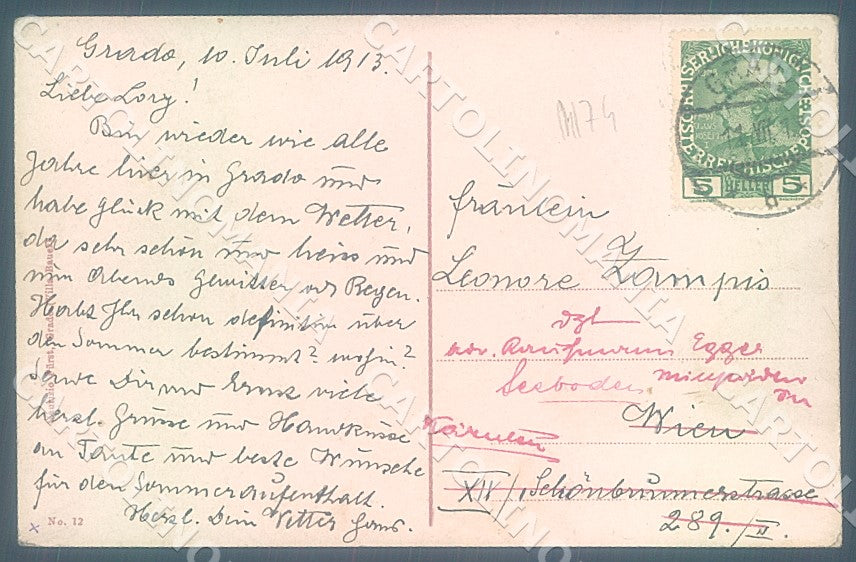 Grado, 10. Juli 1913.
Liebe Lorg!
Bin wieder wie alle
Jahre hier in Grado und
habe Glück mit dem Wetter,
da sehr schön und heiss und
nur Abends Gewitter od Regen.
Habt Ihr schon definitiv über
den Sommer bestimmt? wohin?
Sende Dir und Ernst viele
herzl. Grüsse und Handküsse
an Tante und beste Wünsche
für den Sommeraufenthalt.
Herzl. Dein Vetter Hans.
x No. 12
Fürst, Grado, Villa Bauer
M74
KAISERLICHE KÖNIGLICHE
ÖSTERREICHISCHE POST
5 HELLER 5
11 VII 1
Fräulein
Leonore Zampis
dzt
adr. Kaufmann Egger
Seeboden
Kärnten
Wien
XII/, Schönbrunnerstrasse
289./II.
CARTOLINOMANIA